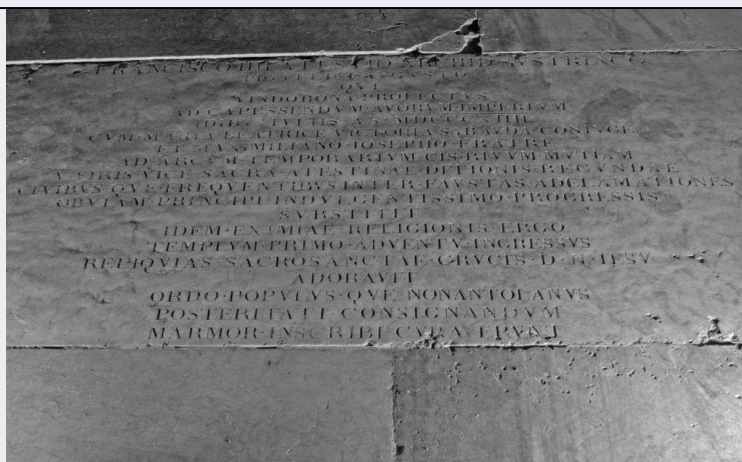 FRANCISCO·III·ATESTIO·ARCHID·AVSTRIACO
PIO·FELICI·AVGVSTO
QVI
VINDOBONA·PROFECTVS
AD·CAPESSENDVM·AVORVM·IMPERIVM
IDIBVS AN·MDCCCXIIII
CVM·MARIA·BEATRICE·VICTORIA·SABAVDA·CONIVGE
ET·MAXIMILIANO·IOSEPHO·FRATRE
AD·ARCVM·TEMPORARIVM·CIS·RIVVM·MVTIAM
V·VIRIS·VICE·SACRA·ATESTINAE·DITIONIS·REGVNDAE
CIVIBVS·QVE·FREQVENTIBVS·INTER·FAVSTAS·ADCLAMATIONES
OBVIAM·PRINCIPI·INDVLGENTISSIMO·PROGRESSIS
SVBSTITIT
IDEM·EXIMIAE·RELIGIONIS·ERGO
TEMPLVM·PRIMO·ADVENTV·INGRESSVS
RELIQVIAS·SACROSANCTAE·CRVCIS·D·N·IESV
ADORAVIT
ORDO·POPVLVS·QVE·NONANTOLANVS
POSTERITATI·CONSIGNANDVM
MARMOR·INSCRIBI·CVRAVERVNT